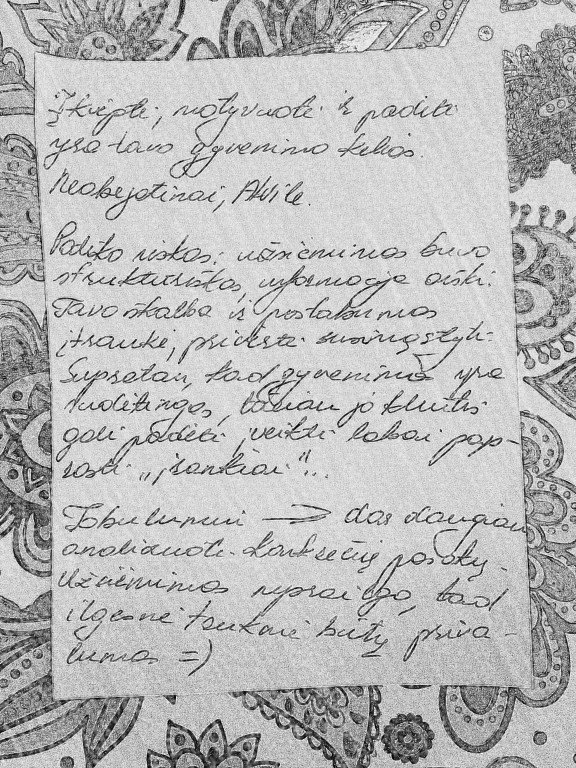 Įkvėpti, motyvuoti ir padėti
yra tavo gyvenimo kelias.
Neabejotinai, Akvile.
Patiko viskas: užsiėmimas buvo
struktūriškas, informacija aiški.
Tavo kalba ir pastabumas
įtraukė, privertė susimąstyti.
Supratau, kad gyvenimas yra
sudėtingas, tačiau jo kliūtis
gali padėti įveikti labai pap-
rasti „įrankiai“...
Tobulumui → dar daugiau
analizuoti konkrečių pasakų.
Užsiėmimas neprailgo, tad
ilgesnė trukmė būtų priva-
lumas =)